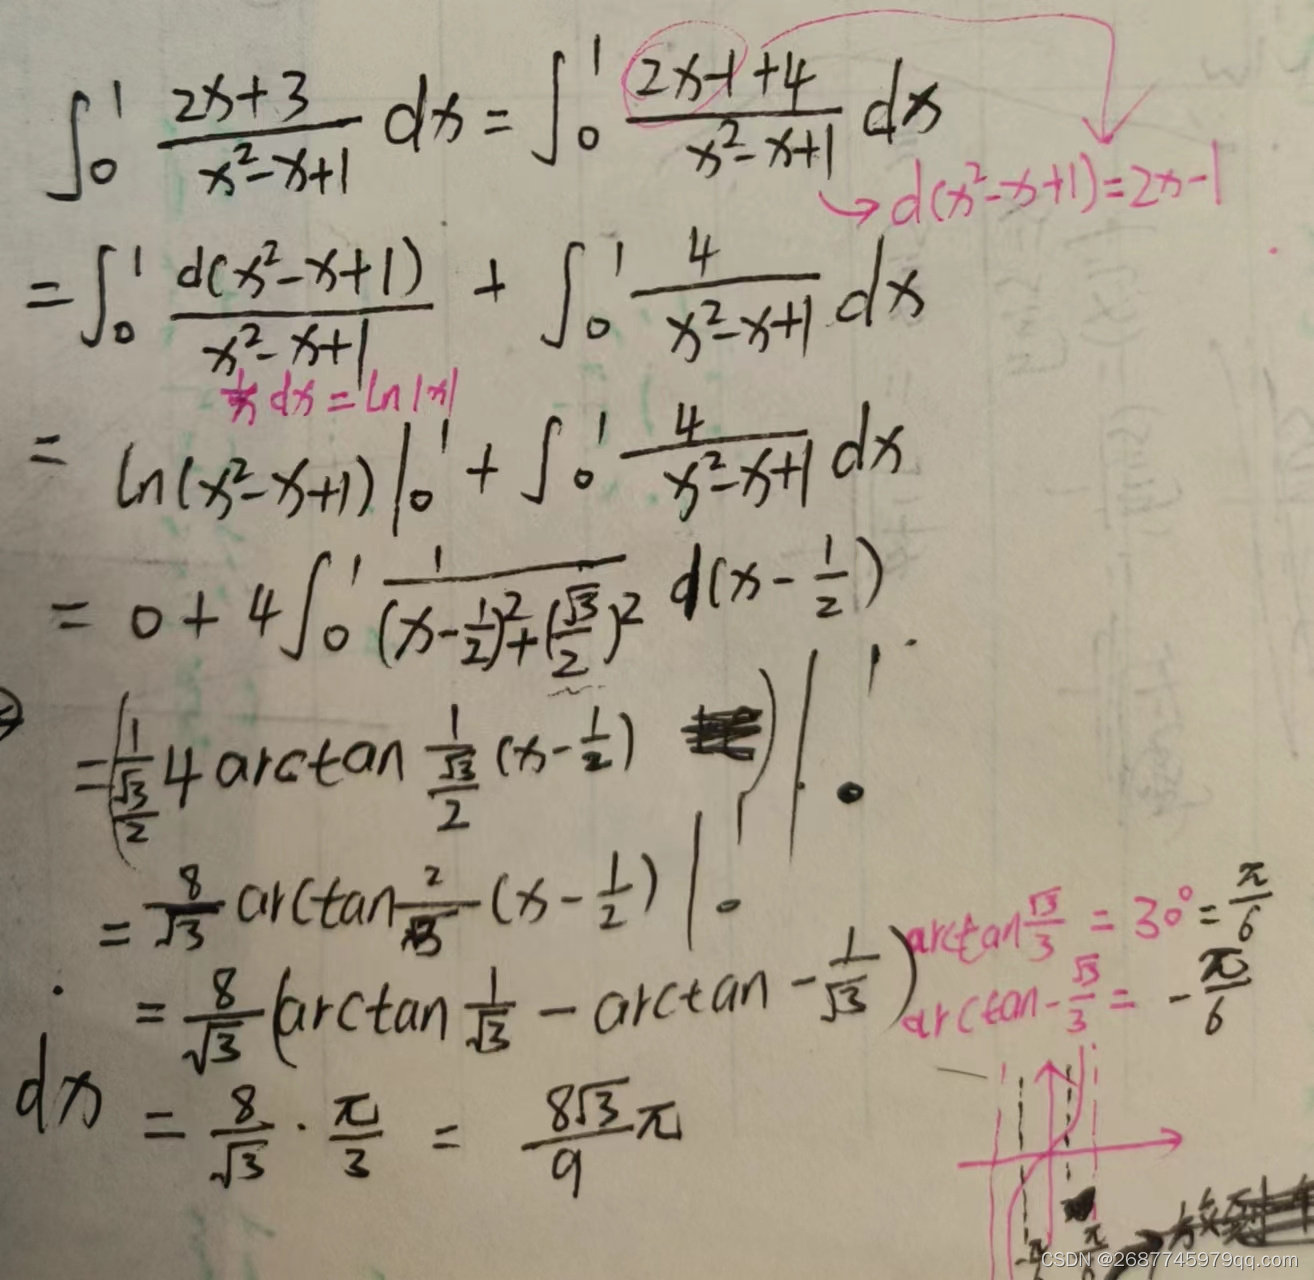 ∫₀¹ (2x+3)/(x²-x+1) dx = ∫₀¹ (2x-1+4)/(x²-x+1) dx
→ d(x²-x+1)=2x-1
= ∫₀¹ d(x²-x+1)/(x²-x+1) + ∫₀¹ 4/(x²-x+1) dx
1/x dx = ln|x|
= ln(x²-x+1)|₀¹ + ∫₀¹ 4/(x²-x+1) dx
= 0 + 4∫₀¹ 1/((x-1/2)²+(√3/2)²) d(x-1/2)
= (1/(√3/2) 4 arctan 1/(√3/2) (x-1/2))|₀¹
= 8/√3 arctan 2/√3 (x-1/2)|₀¹
arctan √3/3 = 30° = π/6
= 8/√3 (arctan 1/√3 - arctan -1/√3)
arctan -√3/3 = -π/6
dx
= 8/√3 · π/3 = 8√3/9 π
CSDN @2687745979qq.com